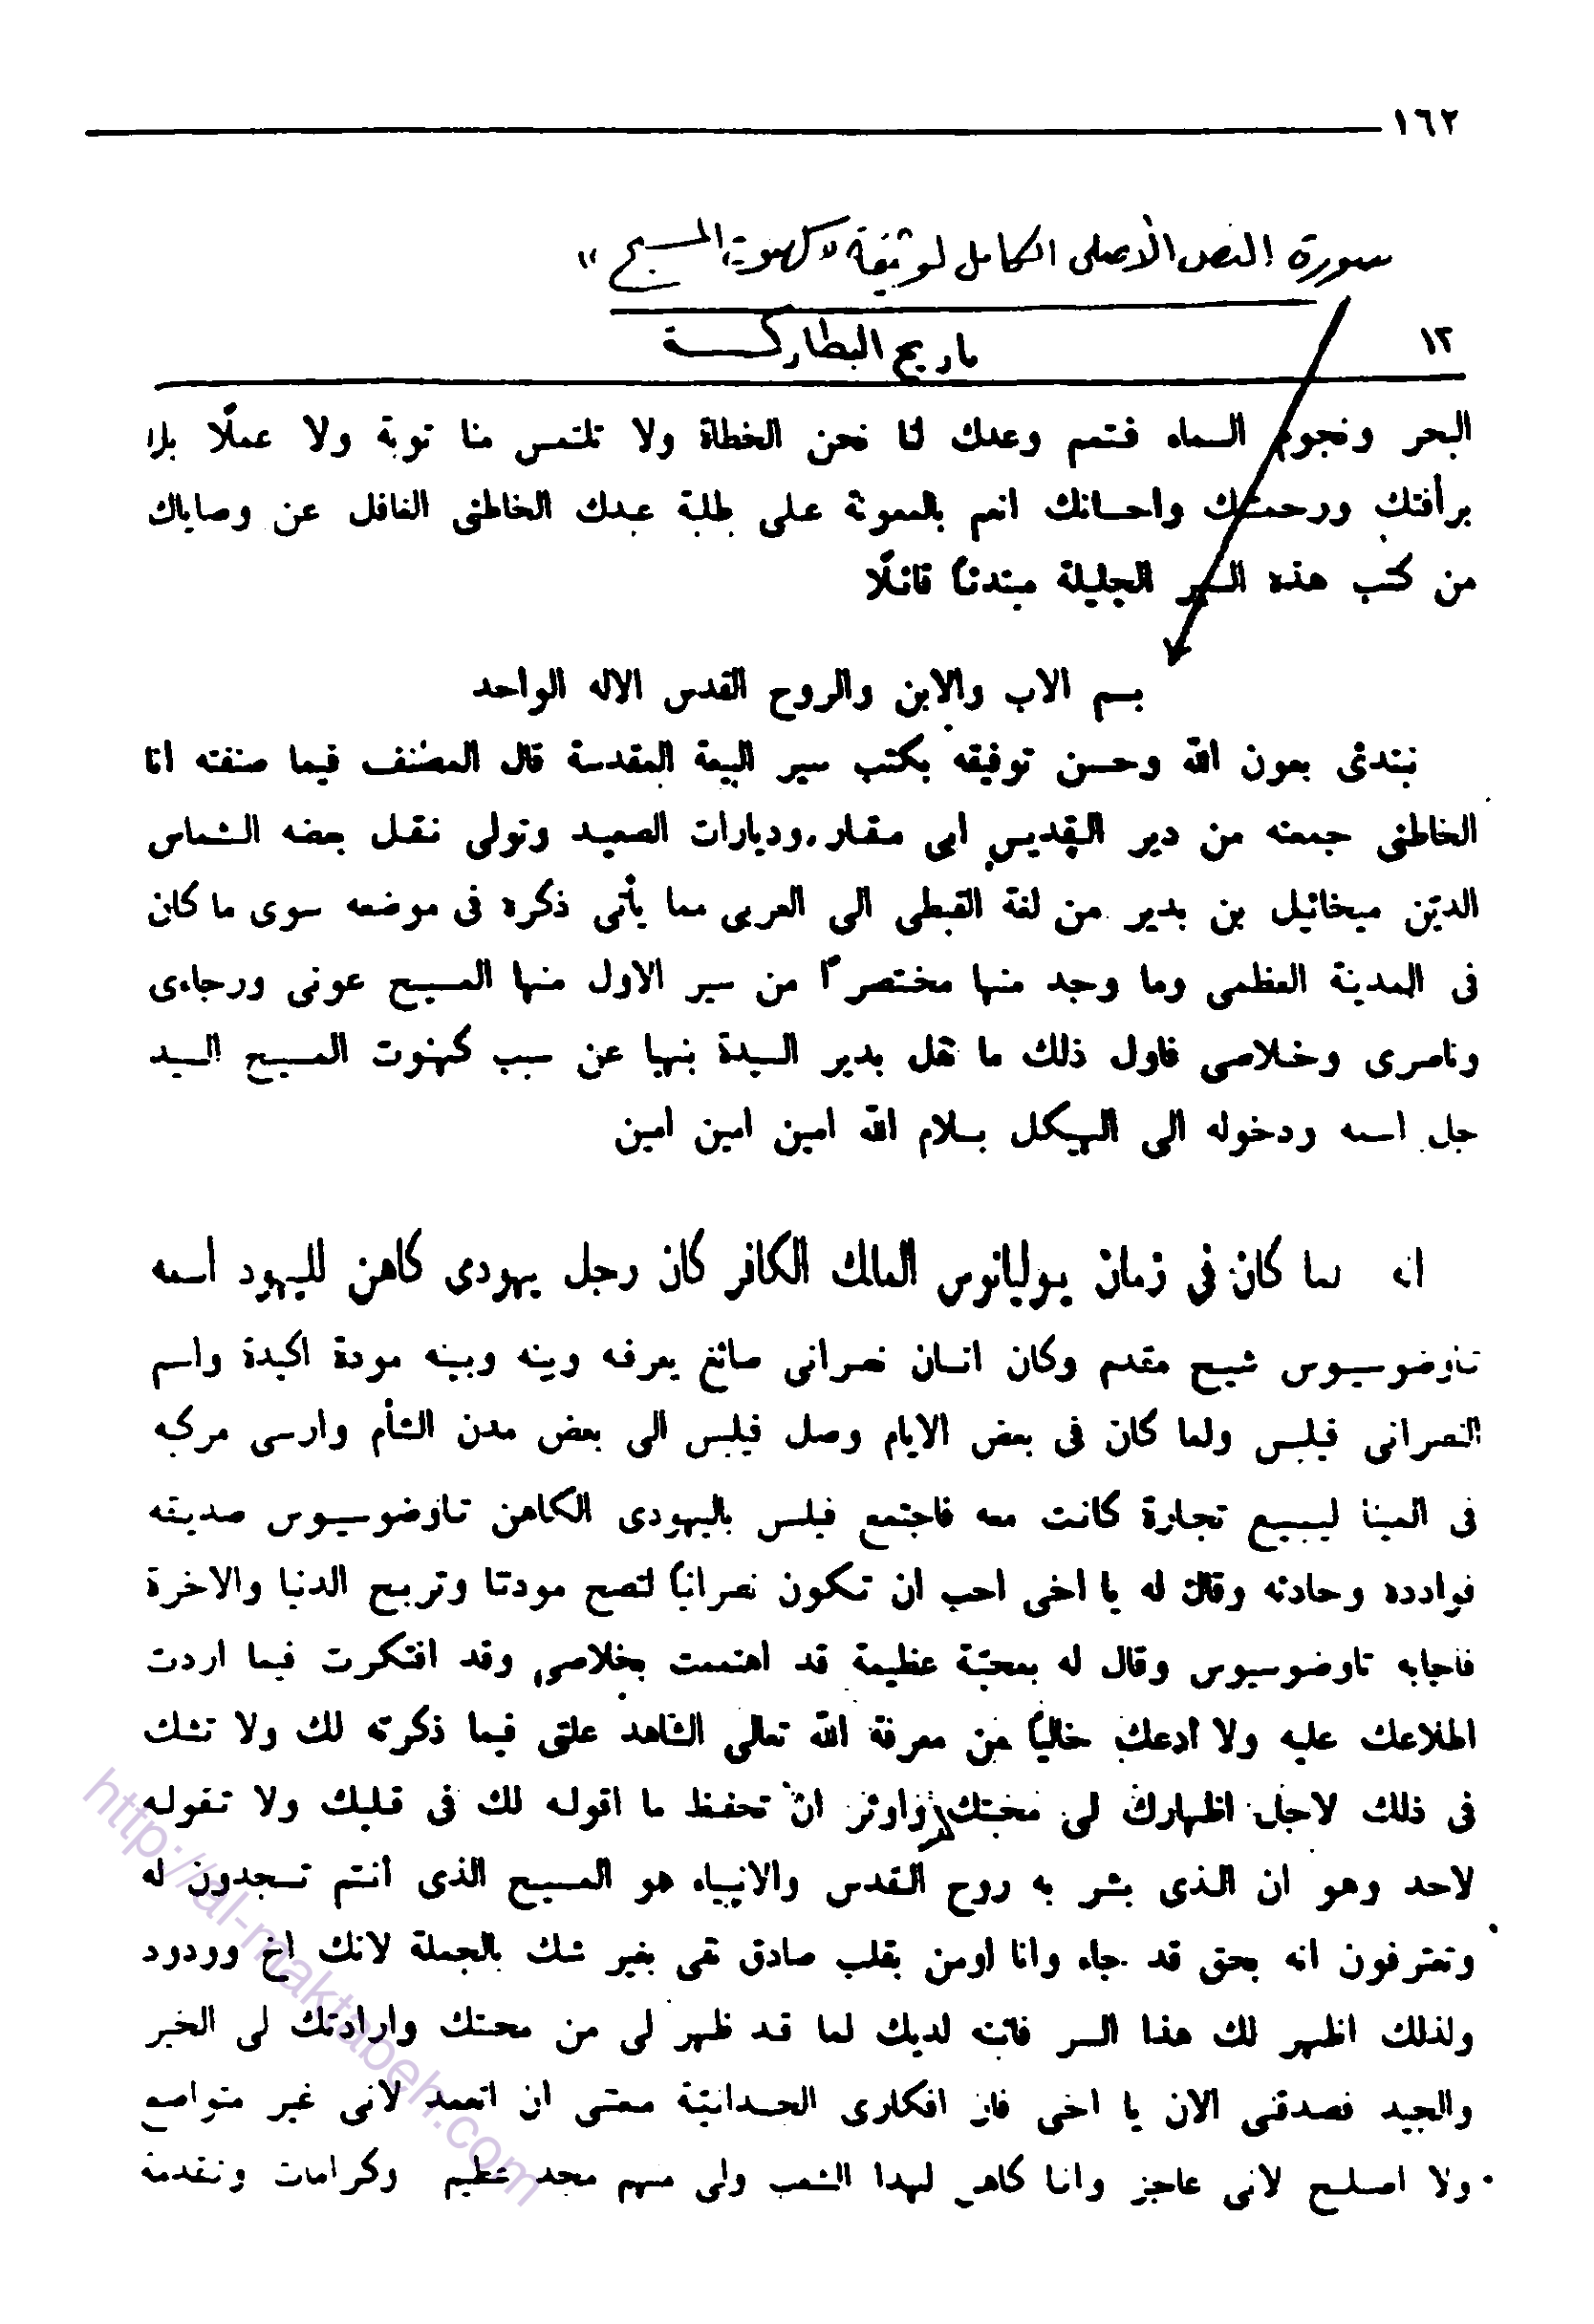 ١٦٢
صورة النص الأصلى الكامل لوثيقة «كهنوت المسيح»
١٢
تاريخ البطاركة
البحر ونجوم السماء فتمم وعدك لنا نحن الخطاة ولا تلتمس منا توبة ولا عملًا بل
برأفتك ورحمتك واحسانك انعم بالمعونة على طلبة عبدك الخاطئ الغافل عن وصاياك
من كتب هذه السير الجليلة مبتدئاً قائلًا
بسم الاب والابن والروح القدس الاله الواحد
نبتدئ بعون الله وحسن توفيقه بكتب سير البيعة المقدسة قال المصنف فيما صنفته انا
الخاطئ جمعته من دير القديس ابى مقار وديارات الصعيد وتولى نقل بعضه الشماس
الديّن ميخائيل بن بدير من لغة القبطى الى العربى مما يأتى ذكره فى موضعه سوى ما كان
فى المدينة العظمى وما وجد منها مختصراً من سير الاول منها المسيح عونى ورجاءى
وناصرى وخلاصى فاول ذلك ما نقل بدير السيدة بنهيا عن سبب كهنوت المسيح السيد
جل اسمه ودخوله الى الهيكل بسلام الله امين امين امين
انه لما كان فى زمان يوليانوس الملك الكافر كان رجل يهودى كاهن لليهود اسمه
تاوضوسيوس شيخ مقدم وكان انسان نصرانى صائغ يعرفه وبينه وبينه مودة اكيدة واسم
النصرانى فيلبس ولما كان فى بعض الايام وصل فيلبس الى بعض مدن الشأم وارسى مركبه
فى المينا ليبيع تجارة كانت معه فاجتمع فيلبس باليهودى الكاهن تاوضوسيوس صديقه
فوادده وحادثه وقال له يا اخى احب ان تكون نصرانياً لتصح مودتنا وتربح الدنيا والاخرة
فاجابه تاوضوسيوس وقال له بمحبّة عظيمة قد اهتممت بخلاصى وقد افتكرت فيما اردت
اطلاعك عليه ولا أدعك خالياً من معرفة الله تعالى الشاهد علىّ فيما ذكرته لك ولا تشك
فى ذلك لاجل اظهارك لى محبتك واوثر ان تحفظ ما اقوله لك فى قلبك ولا تقوله
لاحد وهو ان الذى بشر به روح القدس والانبياء هو المسيح الذى أنتم تسجدون له
وتعترفون انه بحق قد جاء وانا أومن بقلب صادق نقى بغير شك بالجملة لانك اخ وودود
ولذلك اظهر لك هذا السر فاثبته لديك لما قد ظهر لى من محبتك وارادتك لى الخير
والجيد فصدقنى الان يا اخى فان افكارى الجسدانيّة منعتنى ان اتعمد لانى غير متواضع
ولا اصلح لانى عاجز وانا كاهن لهذا الشعب ولى منهم مجد عظيم وكرامات وتقدمة
http://al-maktabeh.com